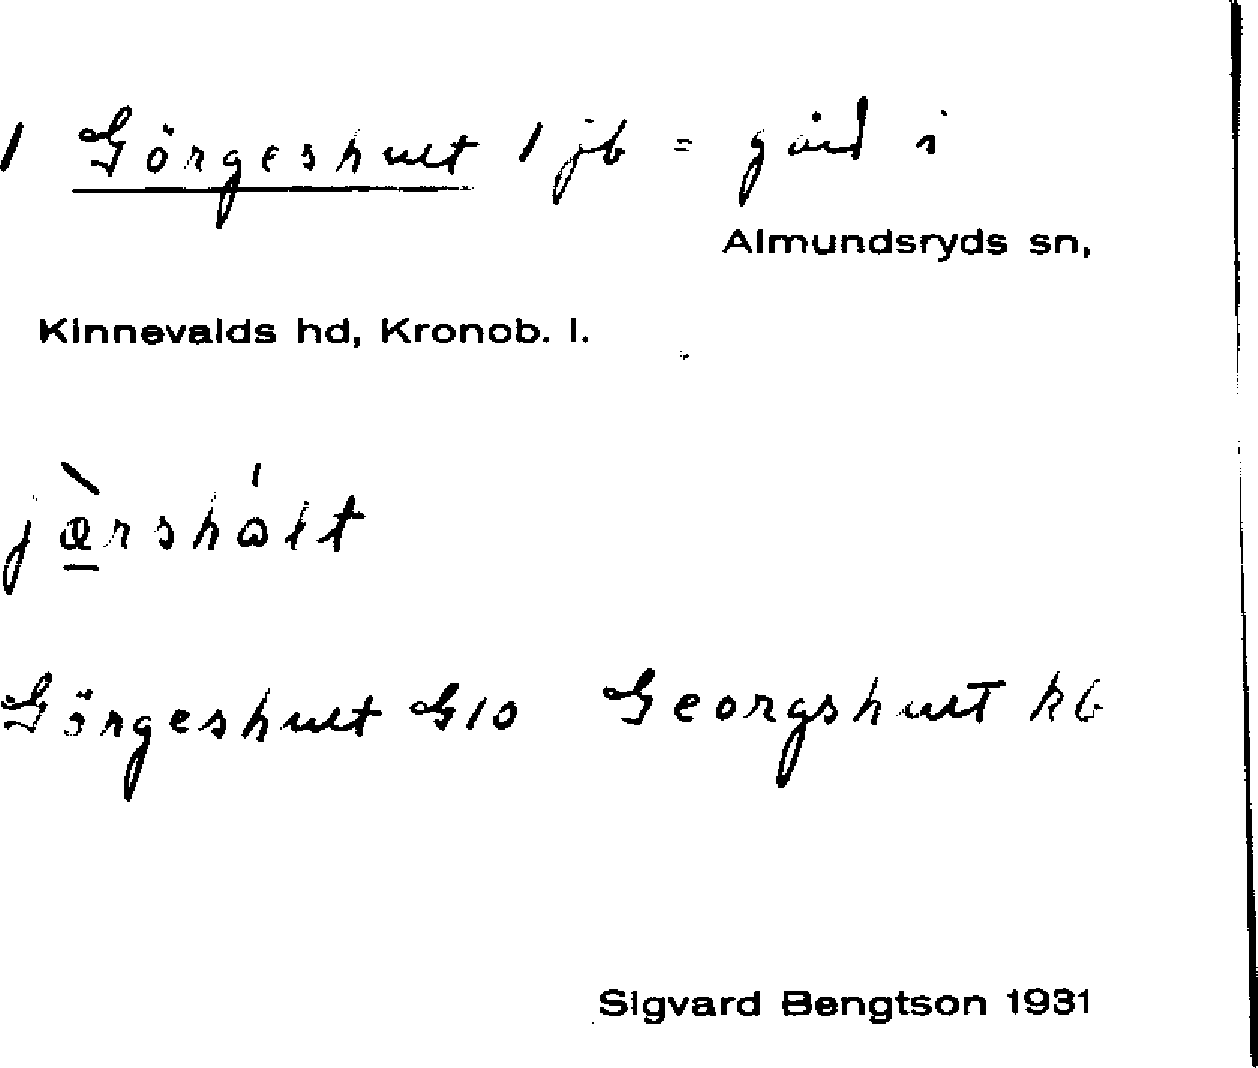 1 Görgeshult 1 jb = gård i
Almundsryds sn,
Kinnevalds hd, Kronob. l.
Görgeshult G10 Georgshult kb
Sigvard Bengtson 1931